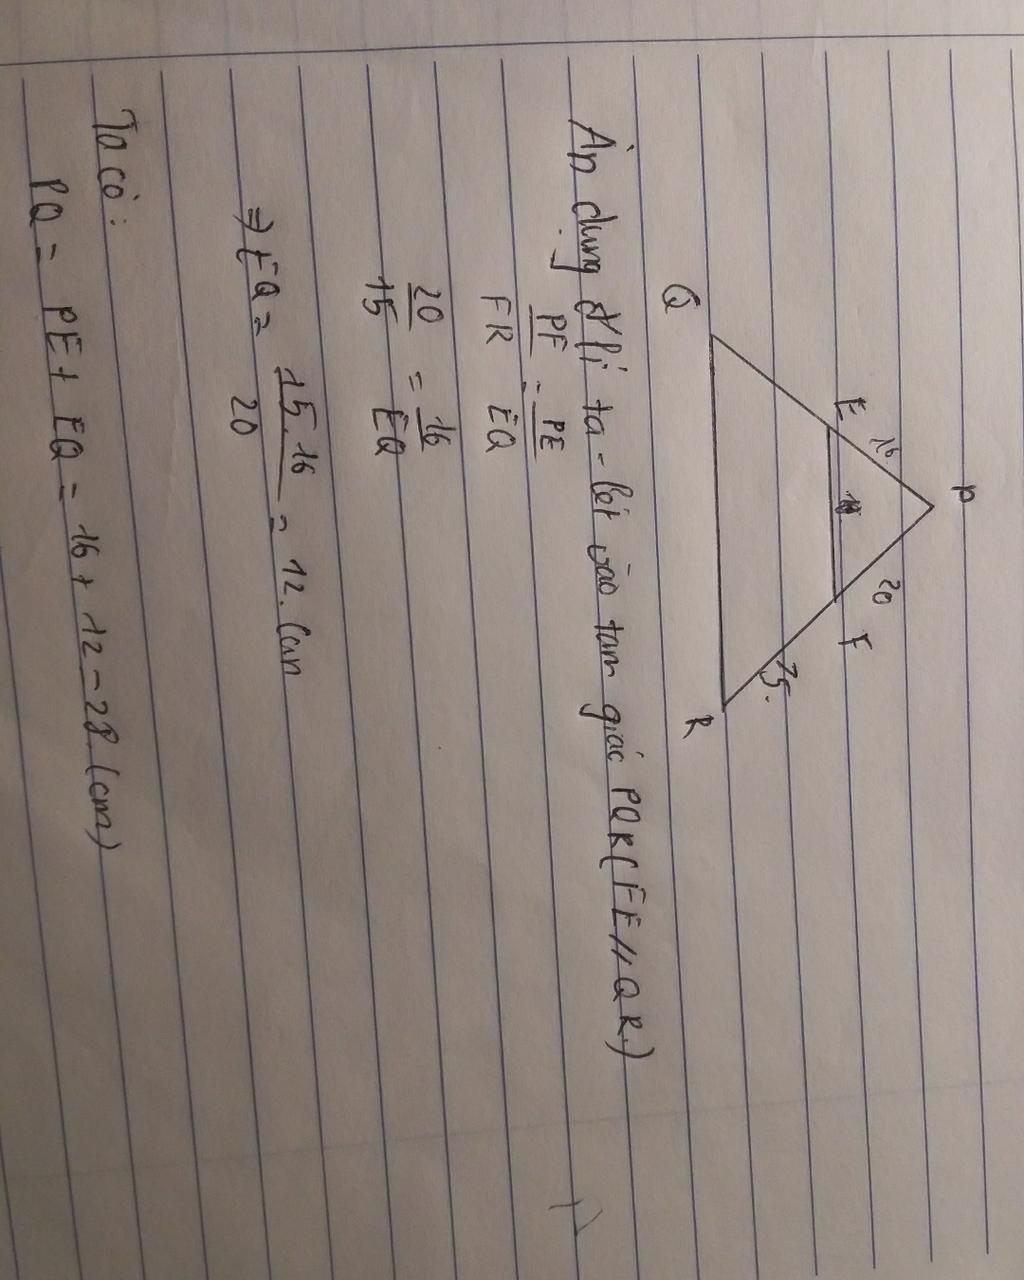 P
16
20
E
F
15.
Q
R
Áp dụng đ/lí ta-lét vào tam giác PQR (FE // QR)
PF = PE
FR EQ
20 = 16
15 EQ
⇒ EQ = 15.16 = 12. Cm
20
Ta có:
PQ = PE + EQ = 16 + 12 = 28 (cm)